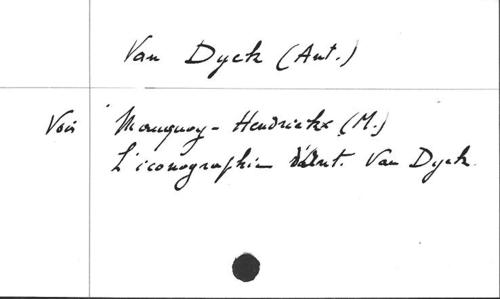 Van Dyck (Ant.)
Voir Mauquoy - Hendrickx (M.)
L'iconographie d'Ant. Van Dyck